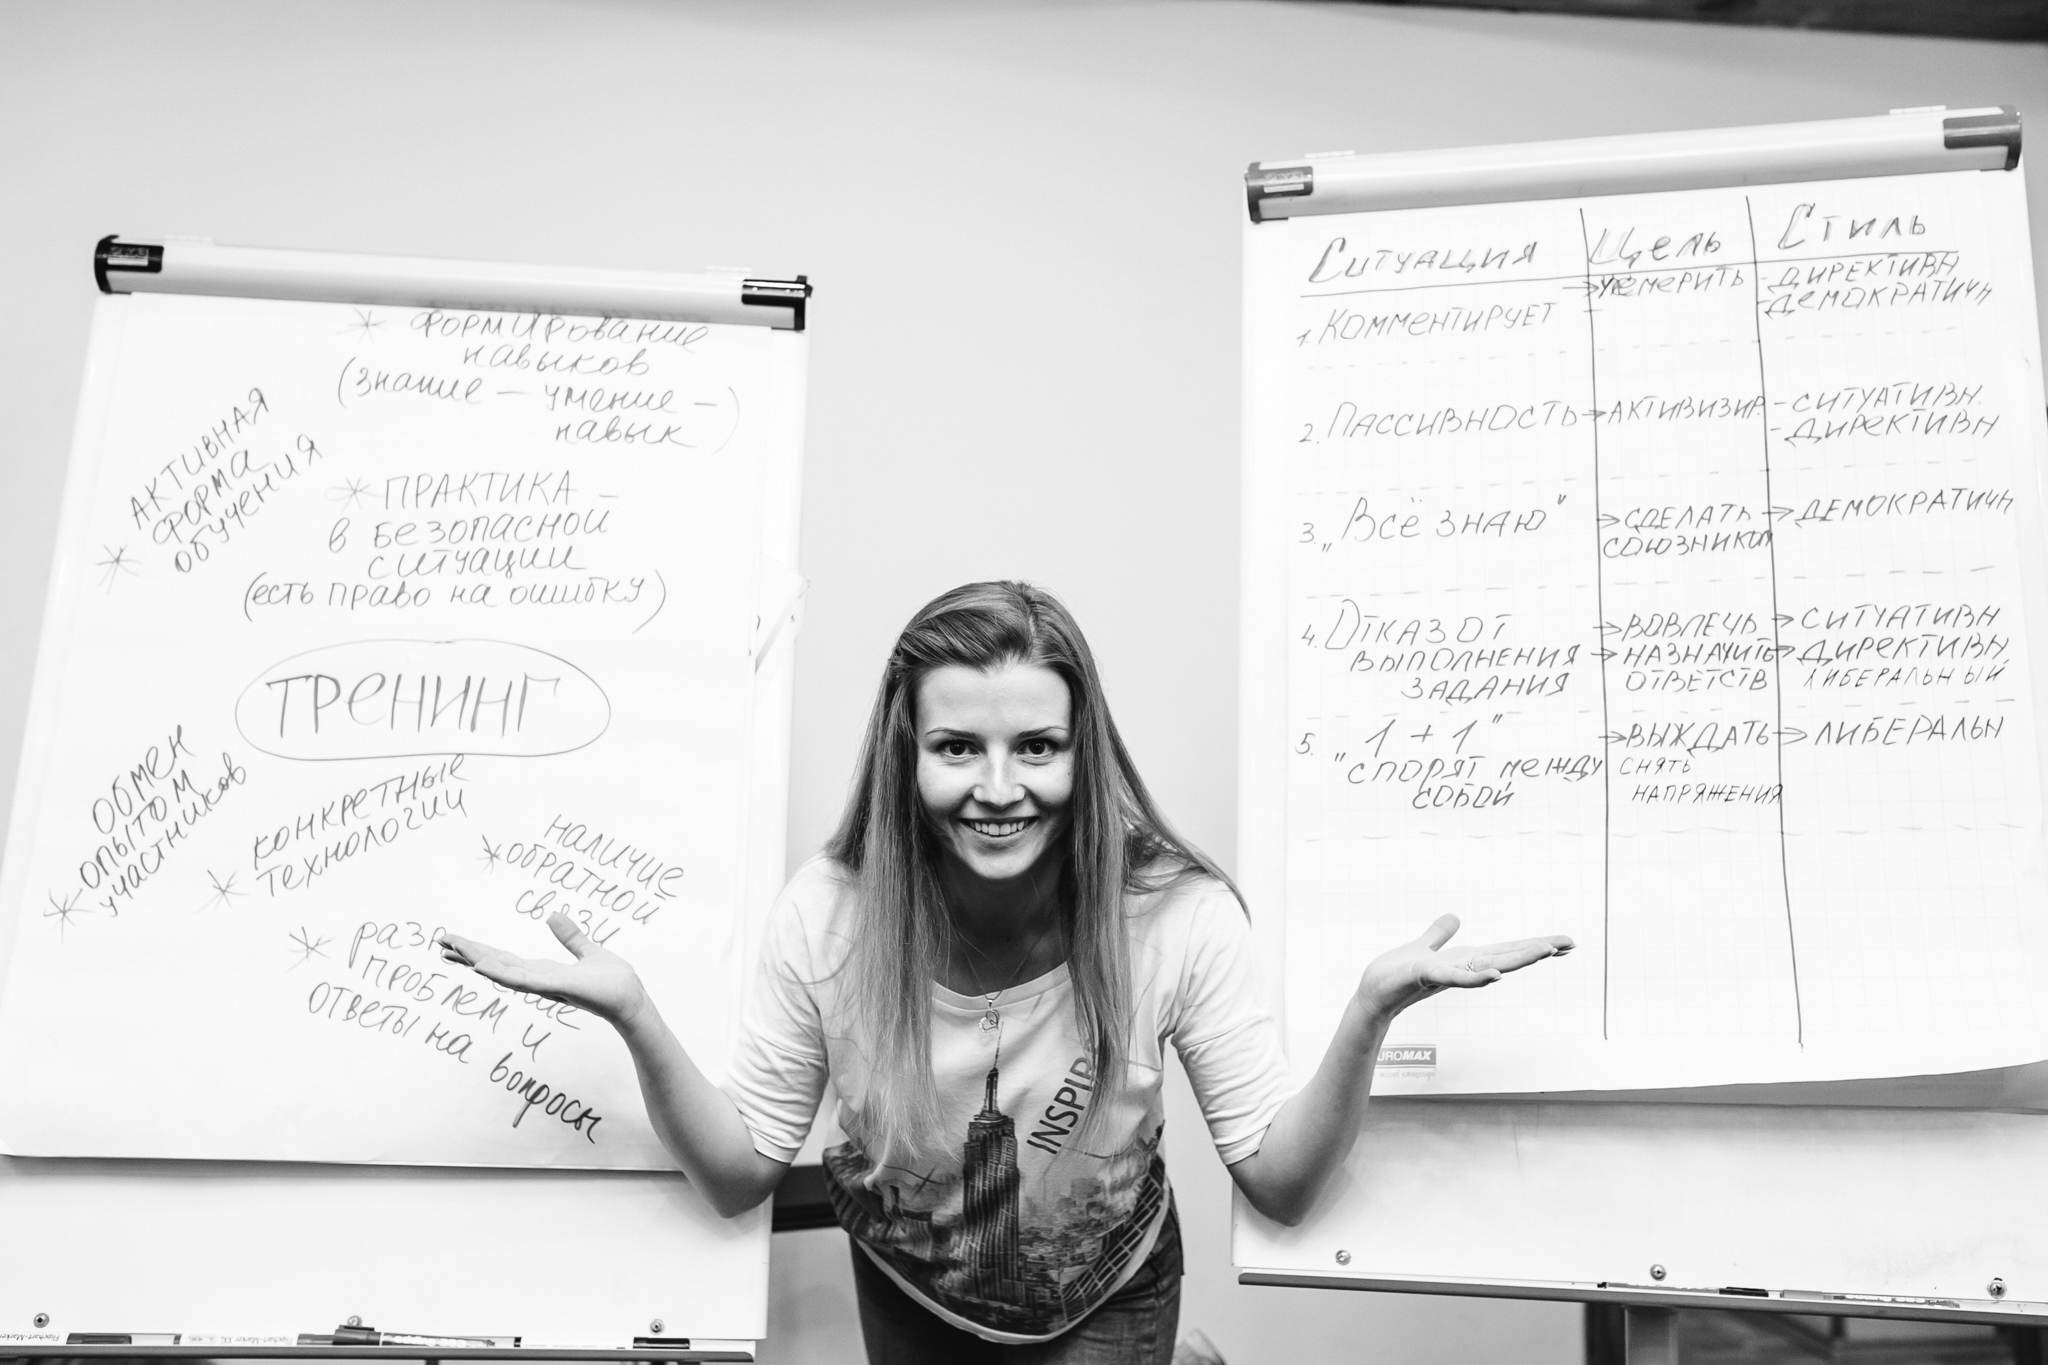 * формирование
навыков
(знание – умение –
навык)
* АКТИВНАЯ
форма
обучения
* ПРАКТИКА –
в безопасной
ситуации
(есть право на ошибку)
ТРЕНИНГ
ОБМЕН
* опытом
участников
конкретные
* технологии
наличие
* обратной
связи
*
проблем и
ответы на вопросы
Ситуация Цель Стиль
1. Комментирует → умерить - директивн
- демократичн
2. Пассивность → активизир. - ситуативн.
- директивн
3. „Всё знаю" → сделать → демократичн
союзником
4. Отказ от → вовлечь → ситуативн
выполнения → назначить → директивн,
задания ответств либеральный
5. „1 + 1" → выждать → либеральн
"спорят между снять
собой напряжения
INSPIR
UROMAX
Flipchart-Marker